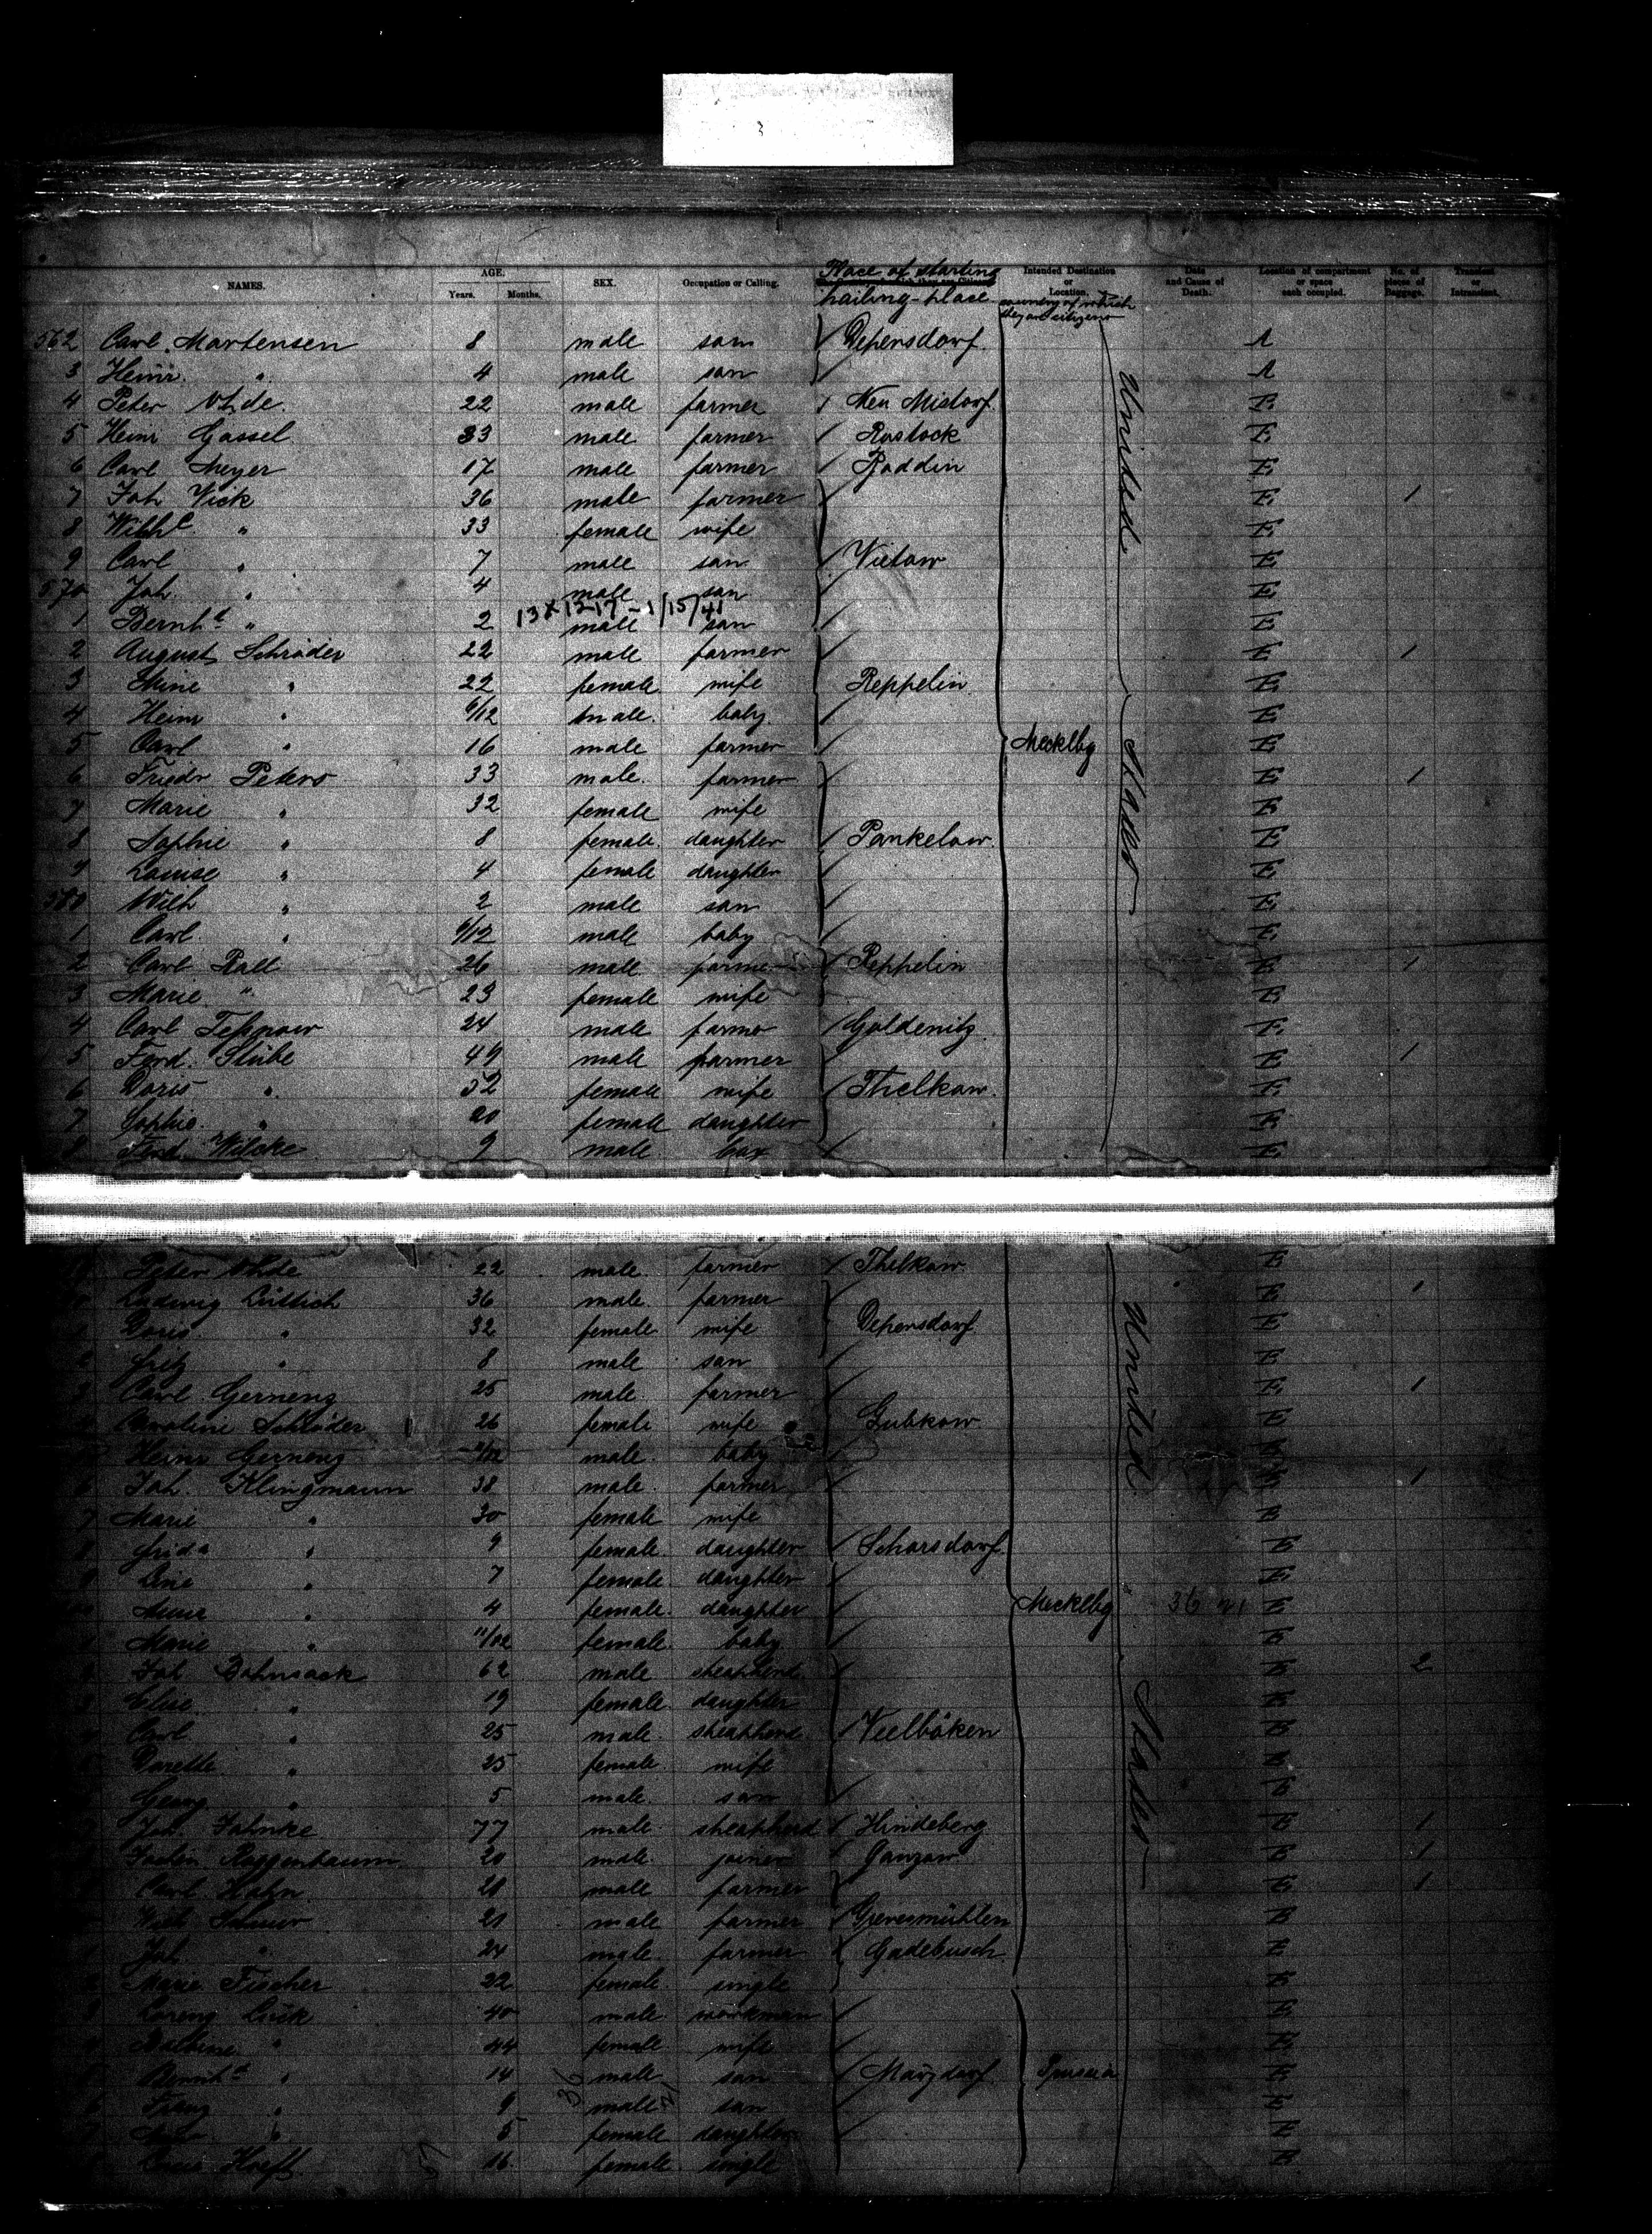 3
NAMES. AGE. Years. Months. SEX. Occupation or Calling. Place of starting hailing-place Intended Destination or Location. country of which they are citizens Date and Cause of Death. Location of compartment or space each occupied. No. of pieces of Baggage. Transient or Intransient.
562 Carl Martensen 8 male son Depersdorf A
3 Heinr. " 4 male son A
4 Peter Ohde 22 male farmer Neu Mistorf E
5 Heinr Gassel 33 male farmer Rostock E
6 Carl Meyer 17 male farmer Roddin E
7 Joh Vick 36 male farmer E 1
8 Wilhe " 33 female wife E
9 Carl " 7 male son Vietow E
570 Joh. " 4 male son E
13X1217-1/15/41
1 Bernhd " 2 male son E
2 August Schröder 22 male farmer E 1
3 Mine " 22 female wife Reppelin E
4 Heinr " 6/12 male baby E
5 Carl " 16 male farmer Mecklbg E
6 Friedr Peters 33 male farmer E 1
7 Marie " 32 female wife E
8 Sophie " 8 female daughter Pankelow E
9 Louise " 4 female daughter E
580 Wilh " 2 male son E
1 Carl " 9/12 male baby E
2 Carl Rall 26 male farmer Reppelin E 1
3 Marie " 23 female wife E
4 Carl Teßnow 24 male farmer Goldenitz E
5 Ferd. Stübe 49 male farmer E 1
6 Doris " 52 female wife Thelkow E
7 Sophie " 20 female daughter E
8 Ferd. Wilcke 9 male boy E
United States
Peter Ohde 22 male farmer Thelkow E
Ludwig Lüttich 36 male farmer E 1
Doris " 32 female wife Depersdorf E
Fritz " 8 male son E
3 Carl Gernenz 25 male farmer E 1
Caroline Schröder 26 female wife Gubkow E
Heinr Gernenz male baby E
6 Joh. Klingmann 38 male farmer E 1
7 Marie " 30 female wife E
Frida " 9 female daughter Scharsdorf E
Line " 7 female daughter E
Anna " 4 female daughter Mecklbg 36 21 E
1 Marie " 11/12 female baby E
Joh Bohnsack 62 male sheapherd E 2
3 Elise " 19 female daughter E
Carl " 25 male sheapherd Veelböken E
Dorette " 25 female wife E
Georg " 5 male son E
Joh. Jahnke 77 male sheapherd Hindeberg E 1
20 male joiner Ganzow E 1
Carl Hahn 21 male farmer E 1
21 male farmer Grevesmühlen E
Joh. " 24 male farmer Gadebusch E
2 Marie Fischer 22 female single E
Lorenz Lück 40 male workman E
" 44 female wife E
Bernhd " 14 male son E
Franz " 9 male son E
7 " 5 female daughter E
16 female single E
United States